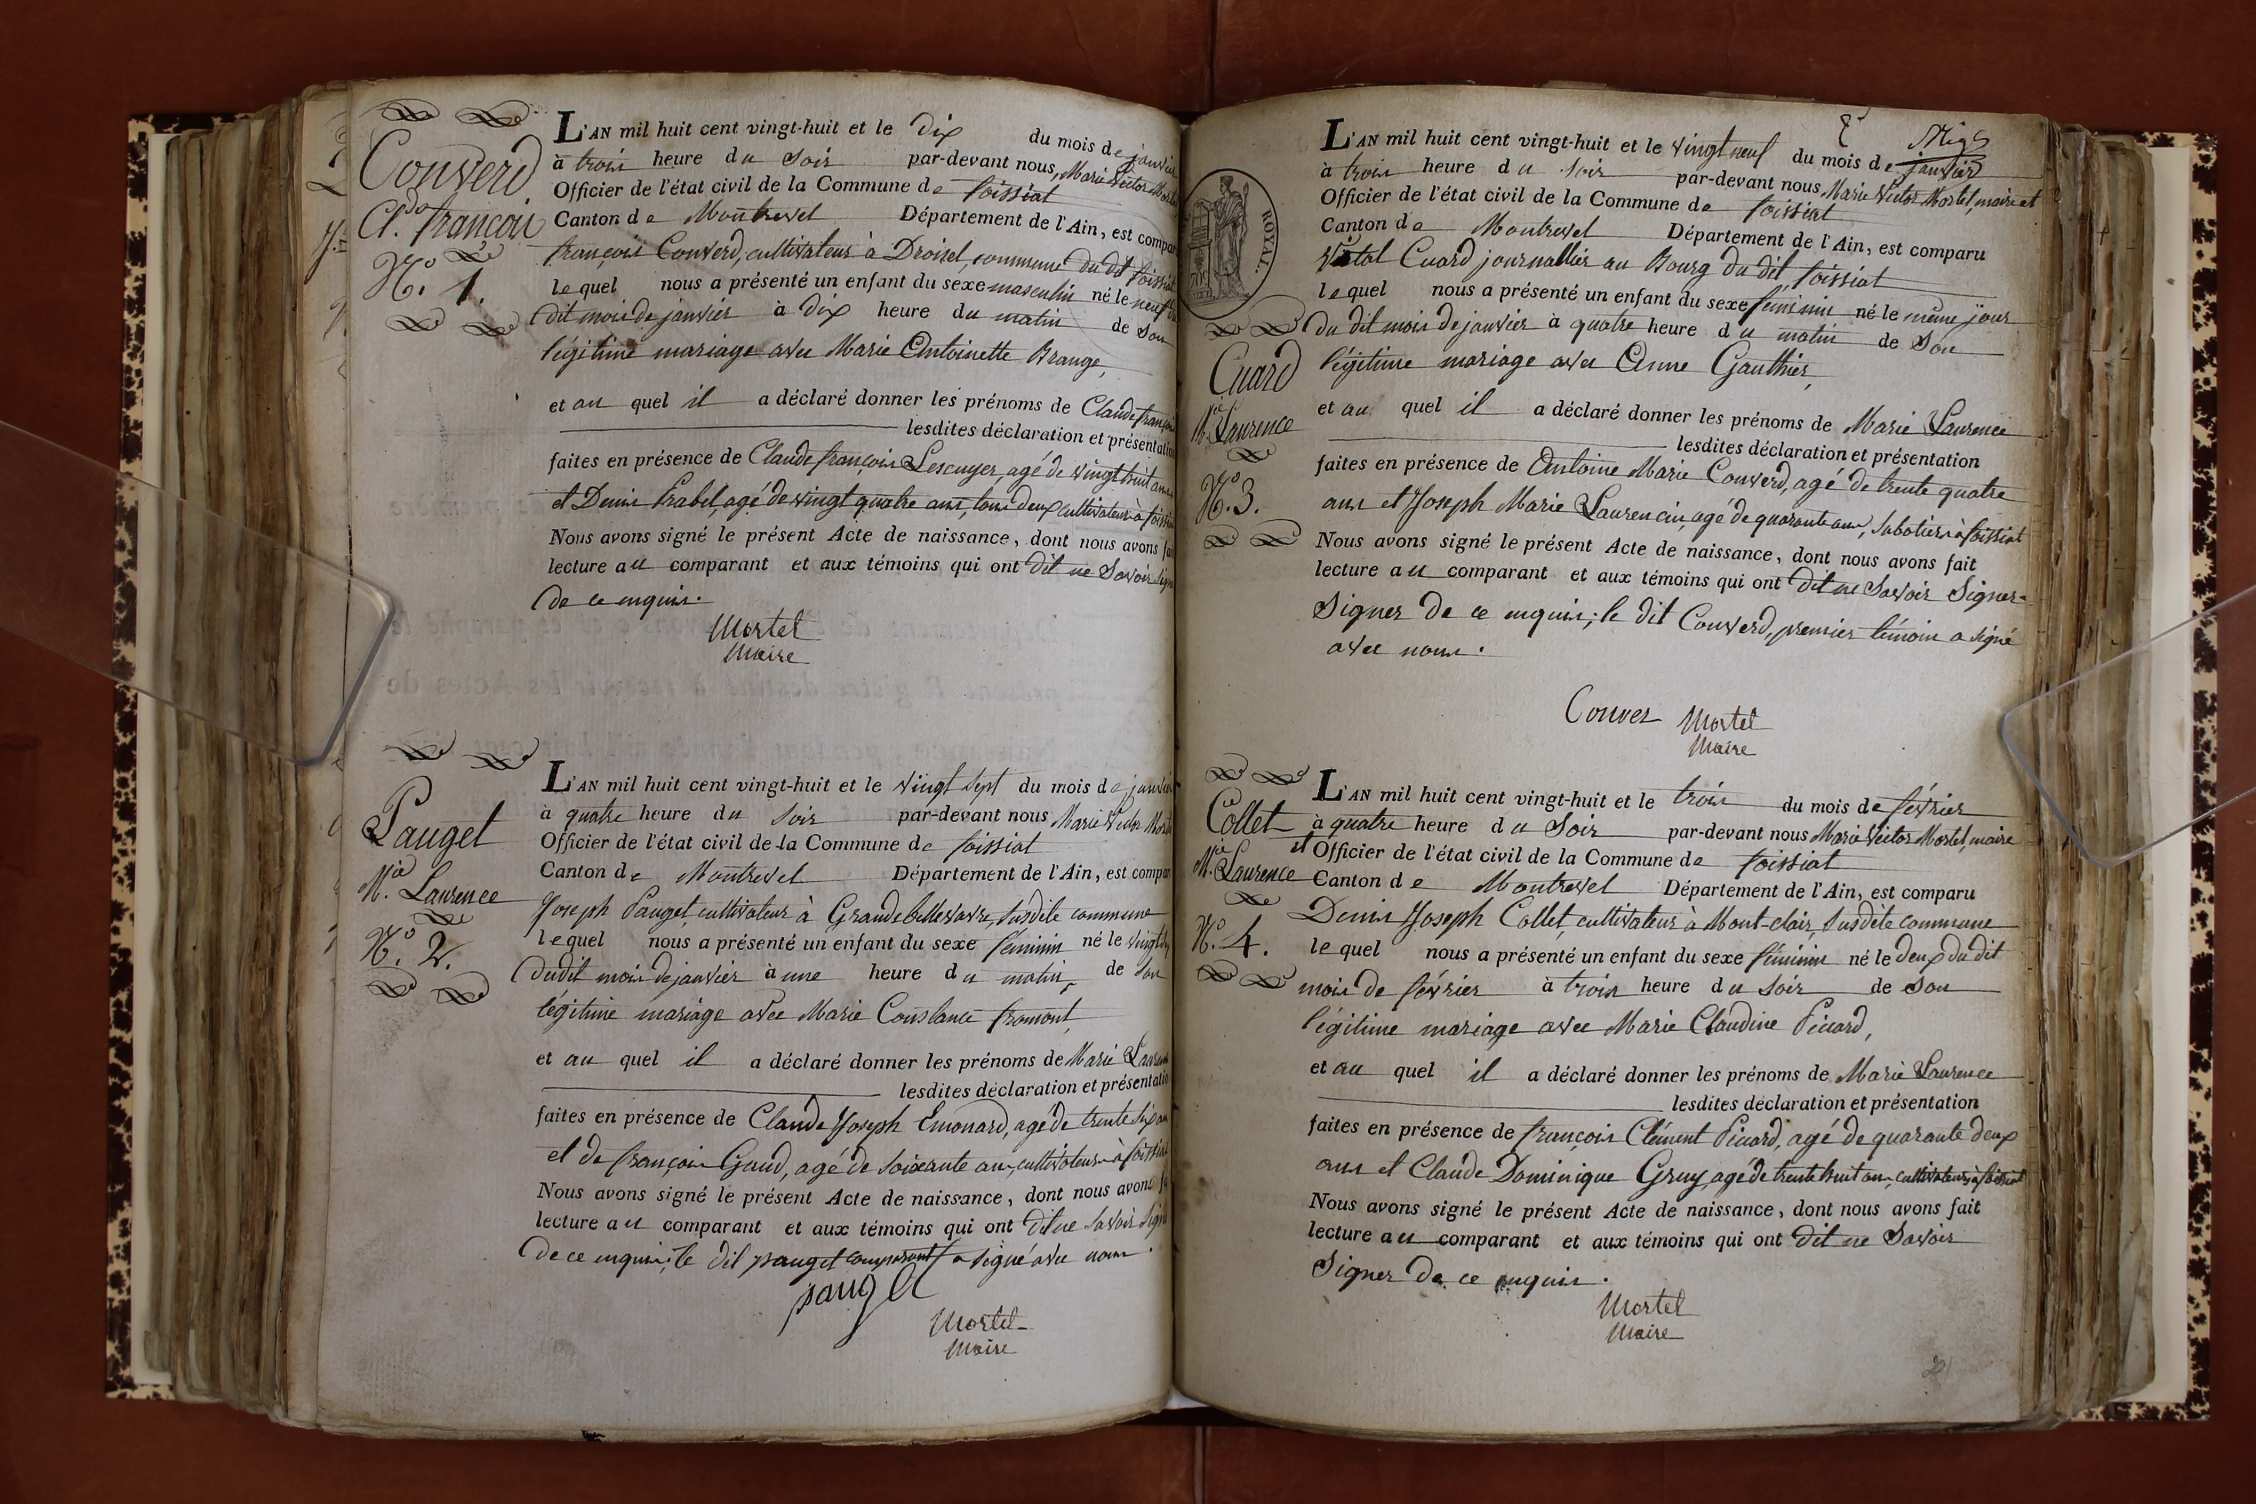 Couverd
Cl.do françois
N.o 1.
L'AN mil huit cent vingt-huit et le dix du mois de janvier
à trois heure du soir par-devant nous, Marie Victor Mortel
Officier de l'état civil de la Commune de foissiat
Canton de Montrevel Département de l'Ain, est compar
françois Couverd, cultivateur à Droisel, commune du dit foissiat
lequel nous a présenté un enfant du sexe masculin né le neuf du
dit mois de janvier à dix heure du matin de son
légitime mariage avec Marie Antoinette Brange,
et au quel il a déclaré donner les prénoms de Claude françois
lesdites déclaration et présentation
faites en présence de Claude françois Lescuyer, agé de vingt huit ans
et Denis Prabel, agé de vingt quatre ans, tous deux cultivateurs à foissiat
Nous avons signé le présent Acte de naissance, dont nous avons fait
lecture au comparant et aux témoins qui ont dit ne Savoir signer
de ce enquis.
Mortel
Maire
Pauget
M.ie Laurence
N.o 2.
L'AN mil huit cent vingt-huit et le vingt sept du mois de janvier
à quatre heure du soir par-devant nous Marie Victor Mortel
Officier de l'état civil de la Commune de foissiat
Canton de Montrevel Département de l'Ain, est compar
Joseph Pauget, cultivateur à Grande bellevavre, susdite commune
lequel nous a présenté un enfant du sexe féminin né le vingt
dudit mois de janvier à une heure du matin, de son
légitime mariage avec Marie Constance fromont,
et au quel il a déclaré donner les prénoms de Marie Laurence
lesdites déclaration et présentation
faites en présence de Claude Joseph Emonard, agé de trente six ans
et de françois Gaud, agé de soixante ans, cultivateurs à foissiat
Nous avons signé le présent Acte de naissance, dont nous avons fa
lecture au comparant et aux témoins qui ont dit ne savoir signer
de ce enquis; le dit pauget comparant a signé avec nous.
pauget
Mortel
Maire
ROYAL.
Cuard
M.ie Laurence
N.o 3.
L'AN mil huit cent vingt-huit et le vingt neuf du mois de janvier
à trois heure du soir par-devant nous Marie Victor Mortel, maire et
Officier de l'état civil de la Commune de foissiat
Canton de Montrevel Département de l'Ain, est comparu
Vital Cuard journallier au Bourg du dit foissiat
lequel nous a présenté un enfant du sexe féminin né le même jour
du dit mois de janvier à quatre heure du matin de son
légitime mariage avec Anne Gauthier,
et au quel il a déclaré donner les prénoms de Marie Laurence
lesdites déclaration et présentation
faites en présence de Antoine Marie Couverd, agé de trente quatre
ans et Joseph Marie Laurencin, agé de quarante ans, sabotiers à foissiat
Nous avons signé le présent Acte de naissance, dont nous avons fait
lecture au comparant et aux témoins qui ont dit ne savoir Signer
Signer de ce enquis; le dit Couverd, premier témoin a signé
avec nous.
Couver Mortel
Maire
Collet
M.ie Laurence
N.o 4.
L'AN mil huit cent vingt-huit et le trois du mois de février
à quatre heure du Soir par-devant nous Marie Victor Mortel, maire
et Officier de l'état civil de la Commune de foissiat
Canton de Montrevel Département de l'Ain, est comparu
Denis Joseph Collet, cultivateur à Mont-clair, Susdite commune
lequel nous a présenté un enfant du sexe féminin né le deux du dit
mois de février à trois heure du soir de son
légitime mariage avec Marie Claudine Picard,
et au quel il a déclaré donner les prénoms de Marie Laurence
lesdites déclaration et présentation
faites en présence de françois Clément Picard, agé de quarante deux
ans et Claude Dominique Gruy, agé de trente huit ans, cultivateurs à foissiat
Nous avons signé le présent Acte de naissance, dont nous avons fait
lecture au comparant et aux témoins qui ont dit ne Savoir
Signer de ce enquis.
Mortel
Maire